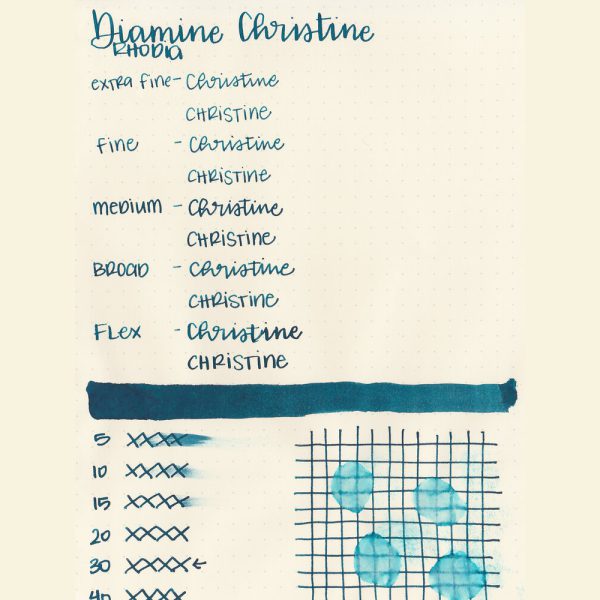 Diamine Christine
RHODIA
extra fine - Christine
CHRISTINE
fine - Christine
CHRISTINE
medium - Christine
CHRISTINE
BROAD - Christine
CHRISTINE
FLEX - Christine
CHRISTINE
5 XXXX
10 XXXX
15 XXXX
20 XXXX
30 XXXX ←
40 XXXX